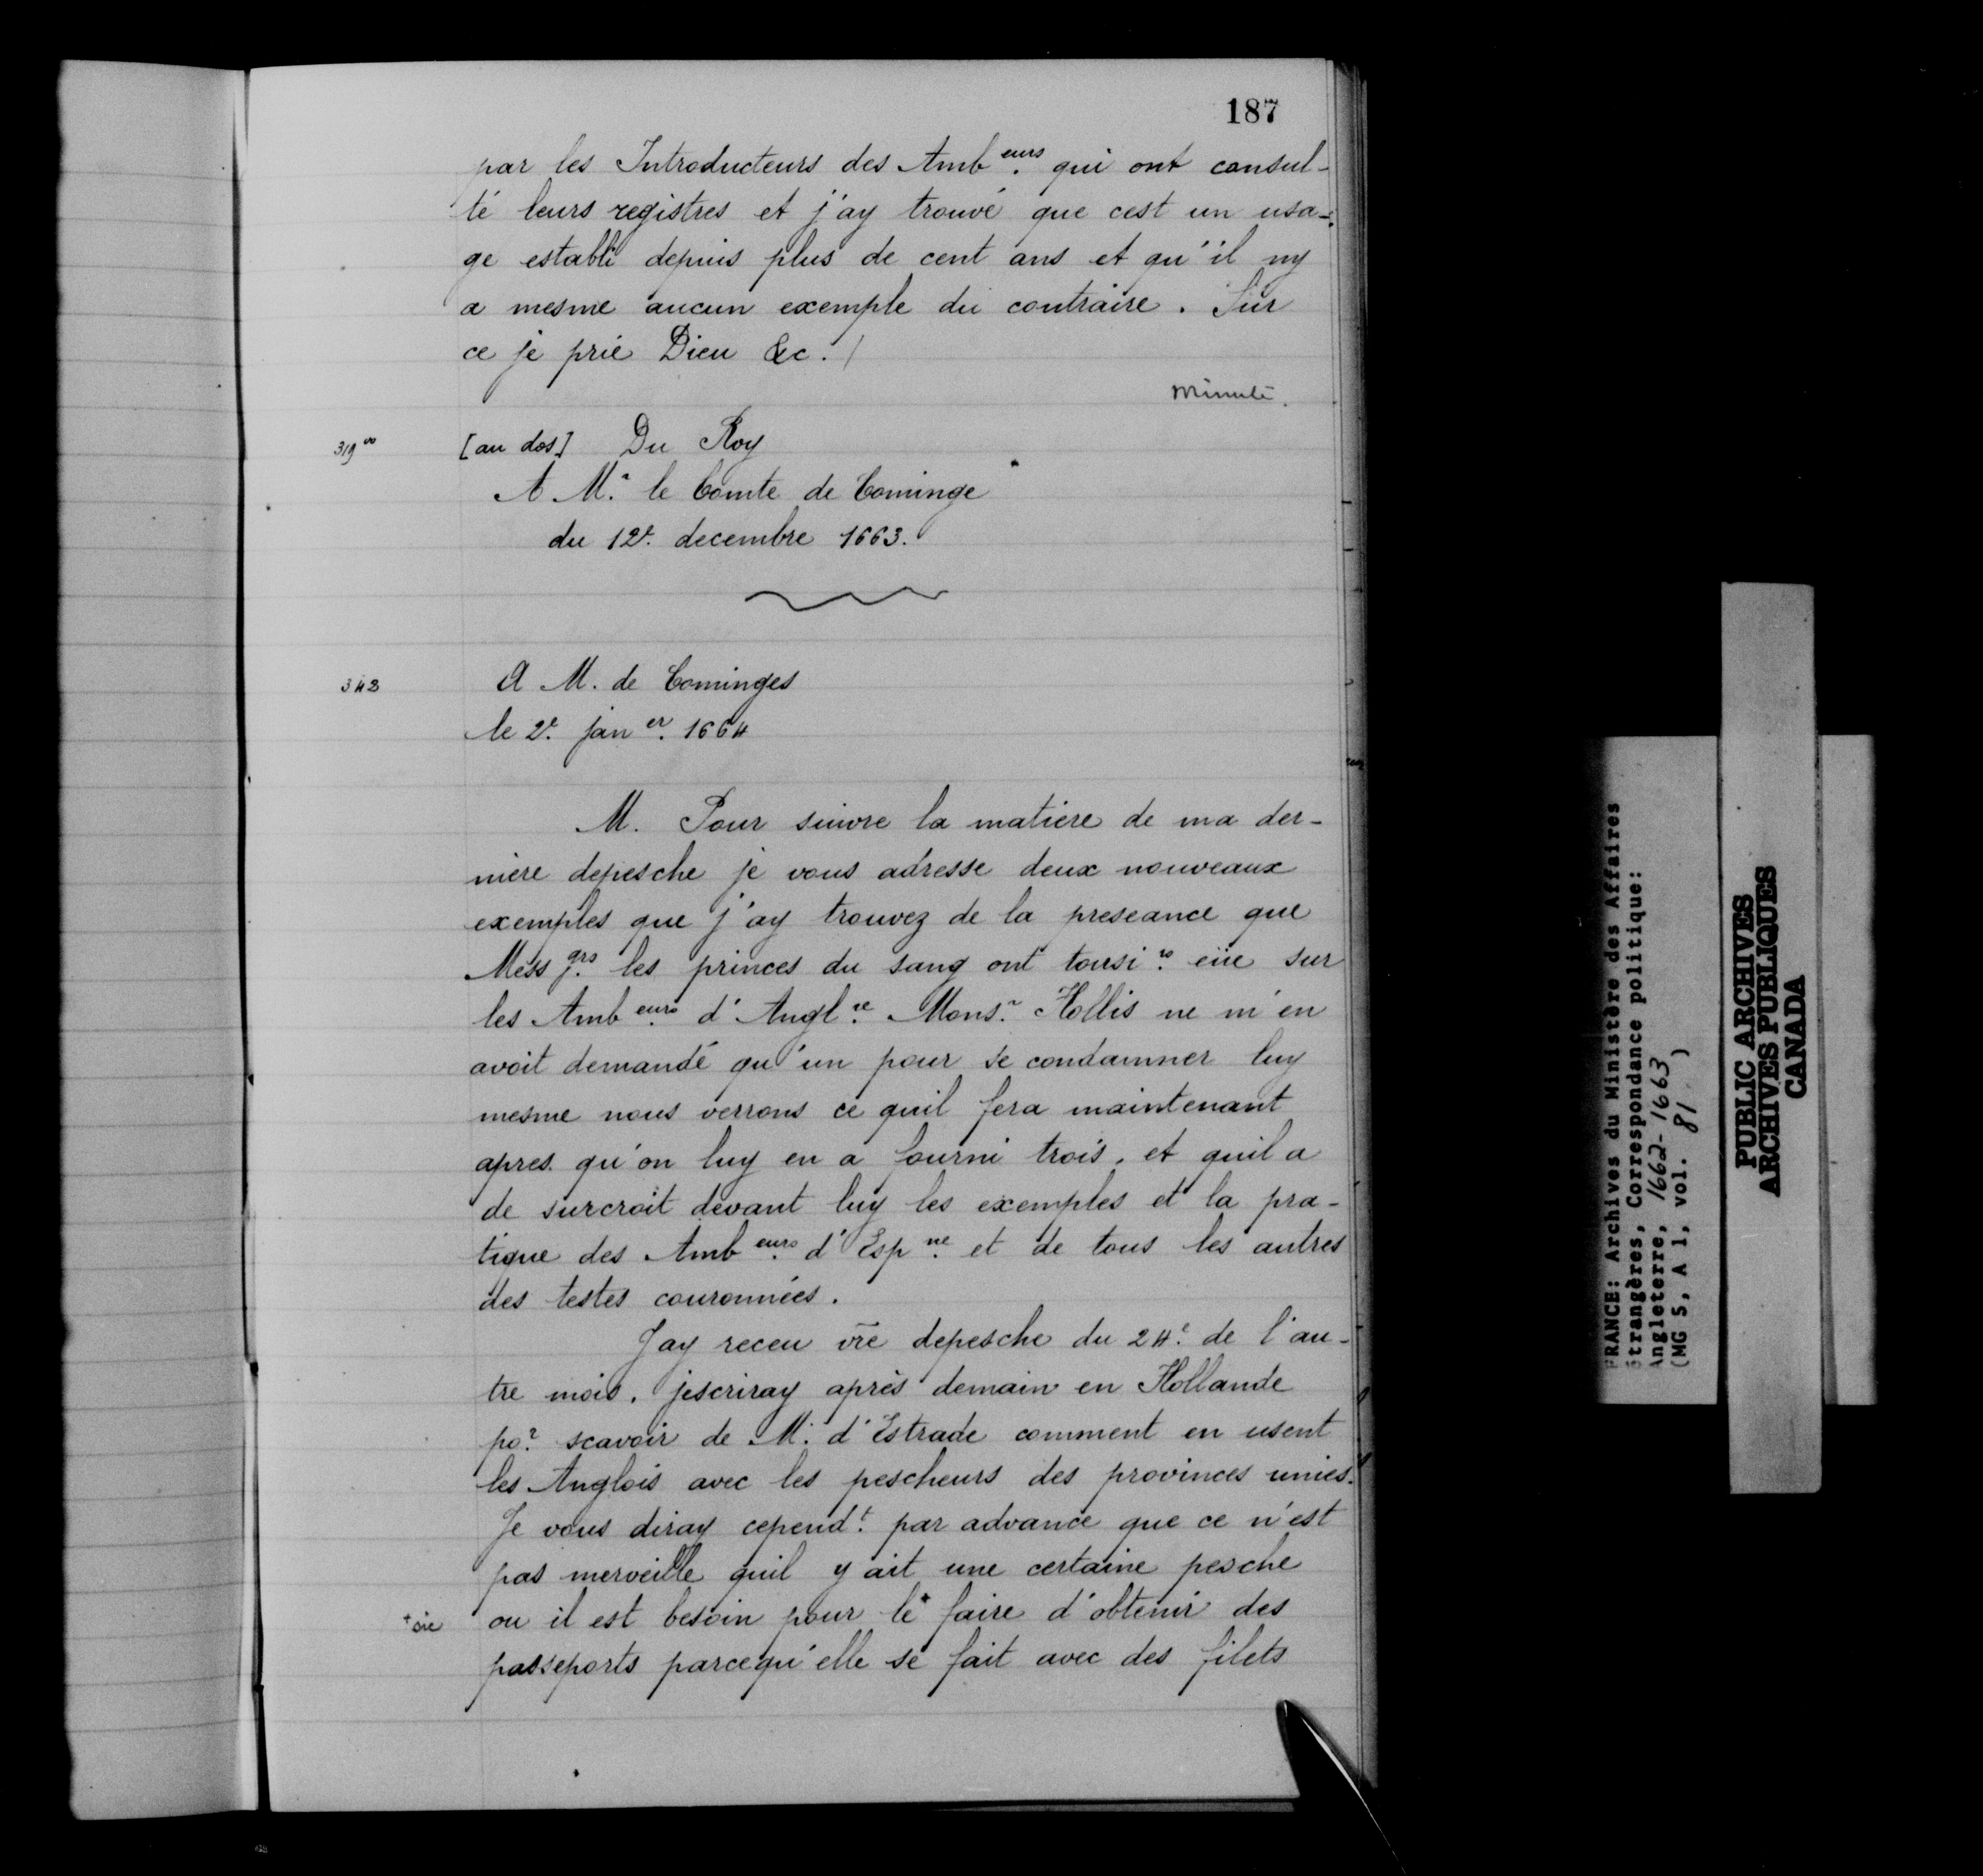 187
par les Introducteurs des Amb.eurs qui ont consul-
té leurs registres et j'ay trouvé que cest un usa-
ge establi depuis plus de cent ans et qu'il ny
a mesme aucun exemple du contraire. Sur
ce je prie Dieu &c. /
Minute.
319 vo
[au dos] Du Roy
A M.r le Comte de Cominge
du 12e. decembre 1663.
342
A M. de Cominges
le 2e. jan.er 1664
M. Pour suivre la matiere de ma der-
niere depesche je vous adresse deux nouveaux
exemples que j'ay trouvez de la preseance que
Mess.grs les princes du sang ont tousj.rs eüe sur
les Amb.eurs d'Angl.re Mons.r Hollis ne m'en
avoit demandé qu'un pour se condamner luy
mesme nous verrons ce quil fera maintenant
apres qu'on luy en a fourni trois, et quil a
de surcroit devant luy les exemples et la pra-
tique des Amb.eurs d'Esp.ne et de tous les autres
des testes couronnées.
Jay receu vr̃e depesche du 24e. de l'au-
tre mois. jescriray après demain en Hollande
po.r scavoir de M. d'Estrade comment en usent
les Anglois avec les pescheurs des provinces unies.
Je vous diray cepend.t par advance que ce n'est
pas merveille quil y ait une certaine pesche
+ sic
ou il est besoin pour le+ faire d'obtenir des
passeports parcequ'elle se fait avec des filets
FRANCE: Archives du Ministère des Affaires
étrangères, Correspondance politique:
Angleterre, 1662-1663
(MG 5, A 1, vol. 81 )
PUBLIC ARCHIVES
ARCHIVES PUBLIQUES
CANADA